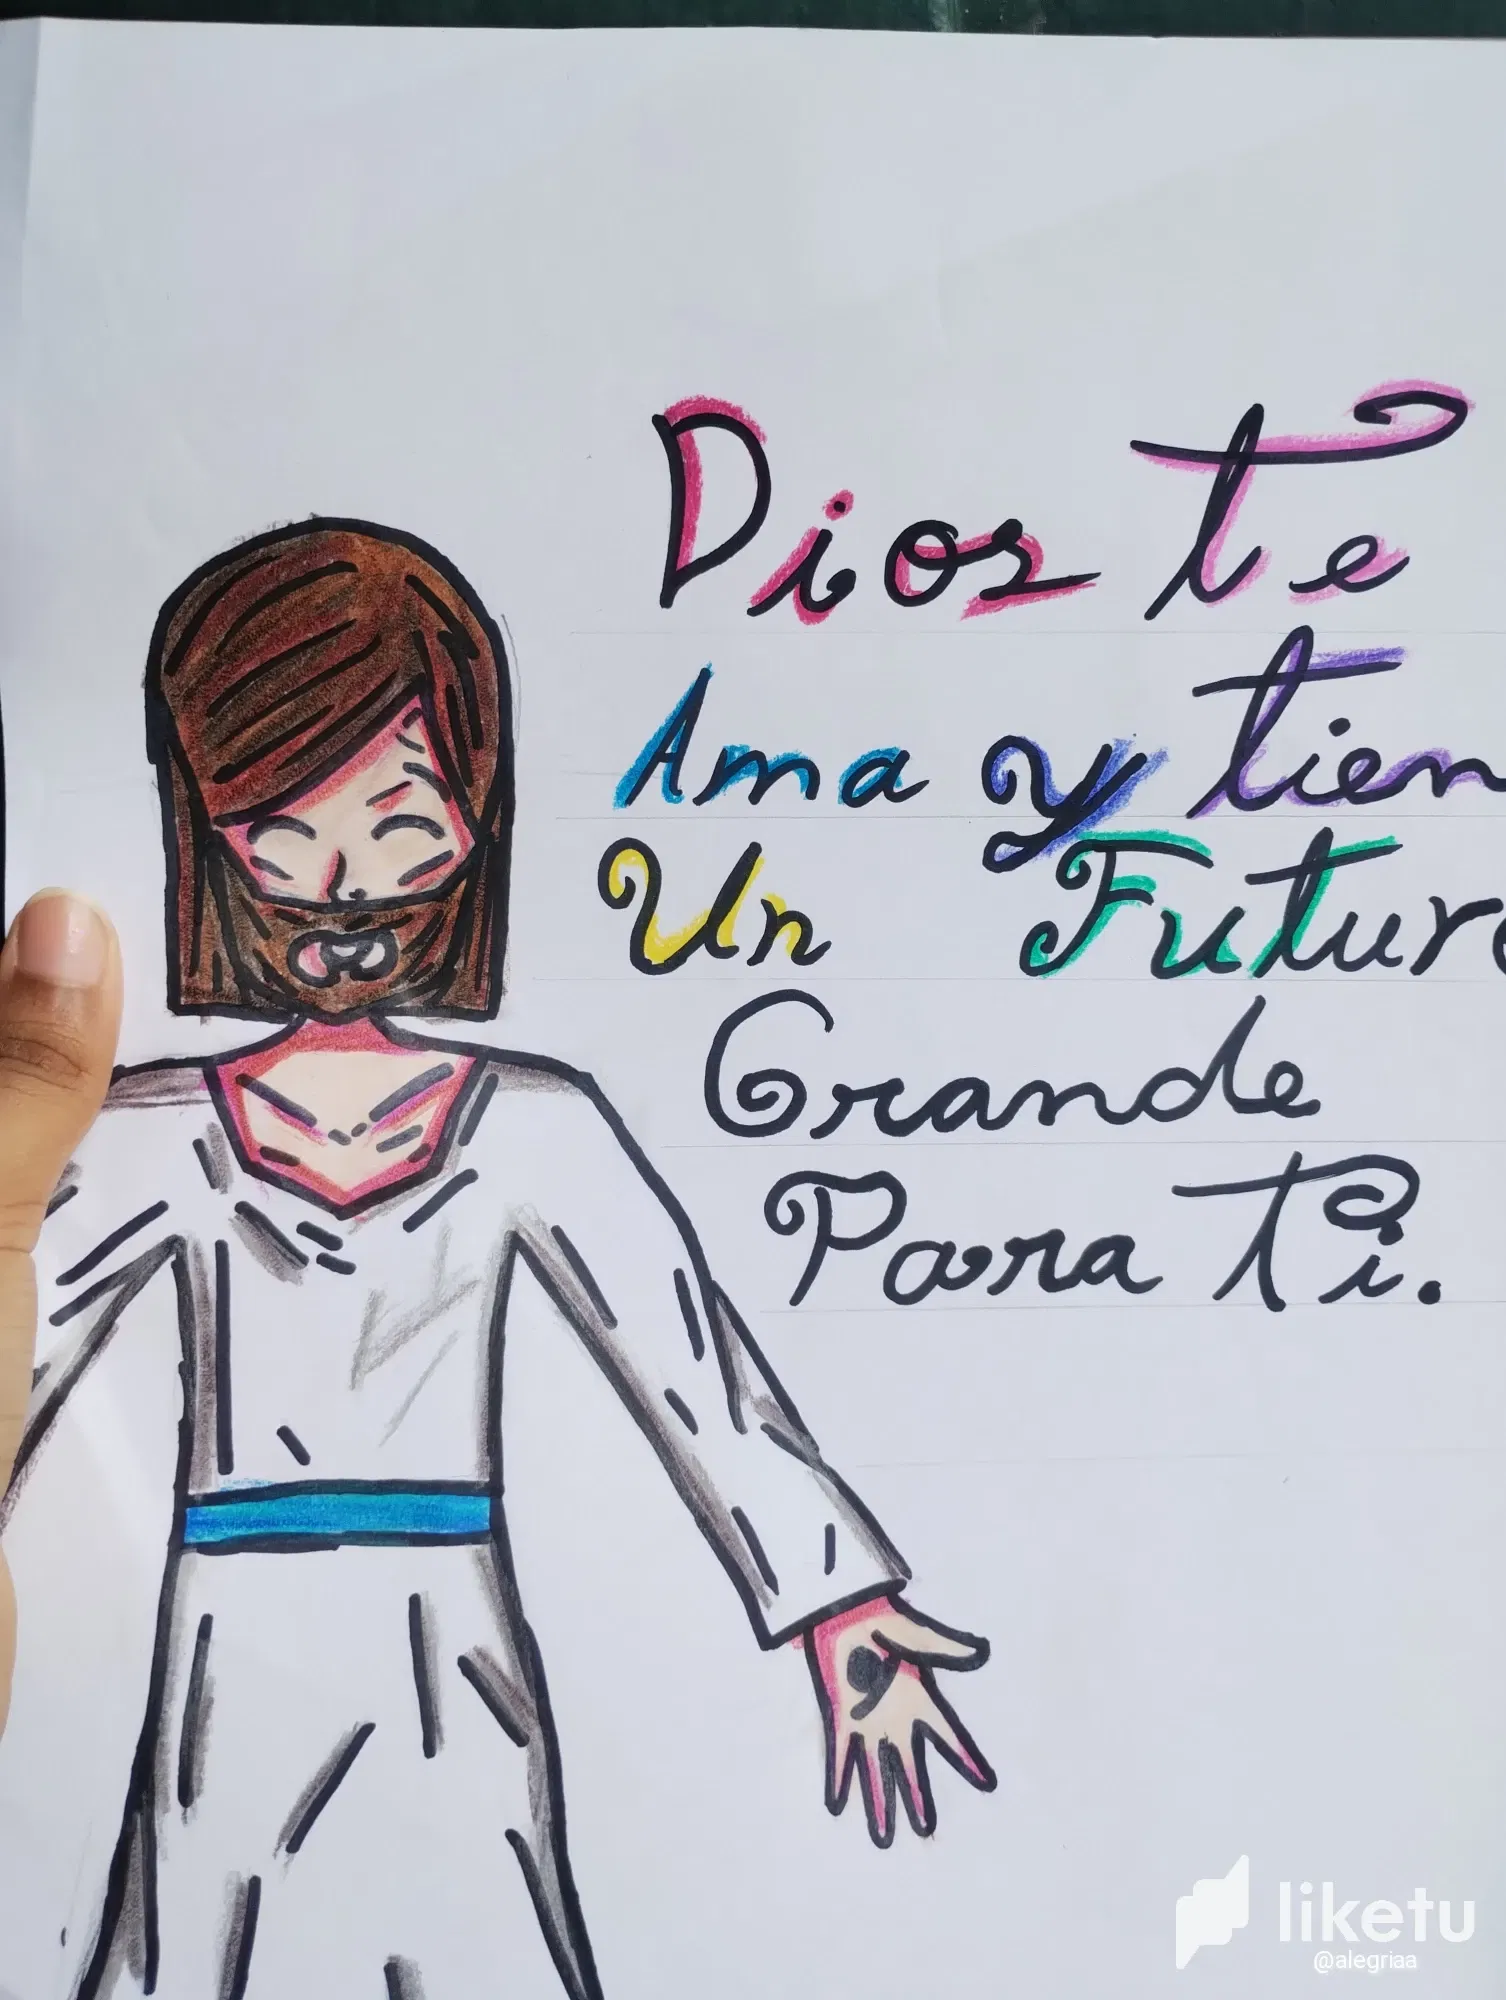 Dios te
Ama y tien
Un Futuro
Grande
Para ti.
liketu
@alegriaa